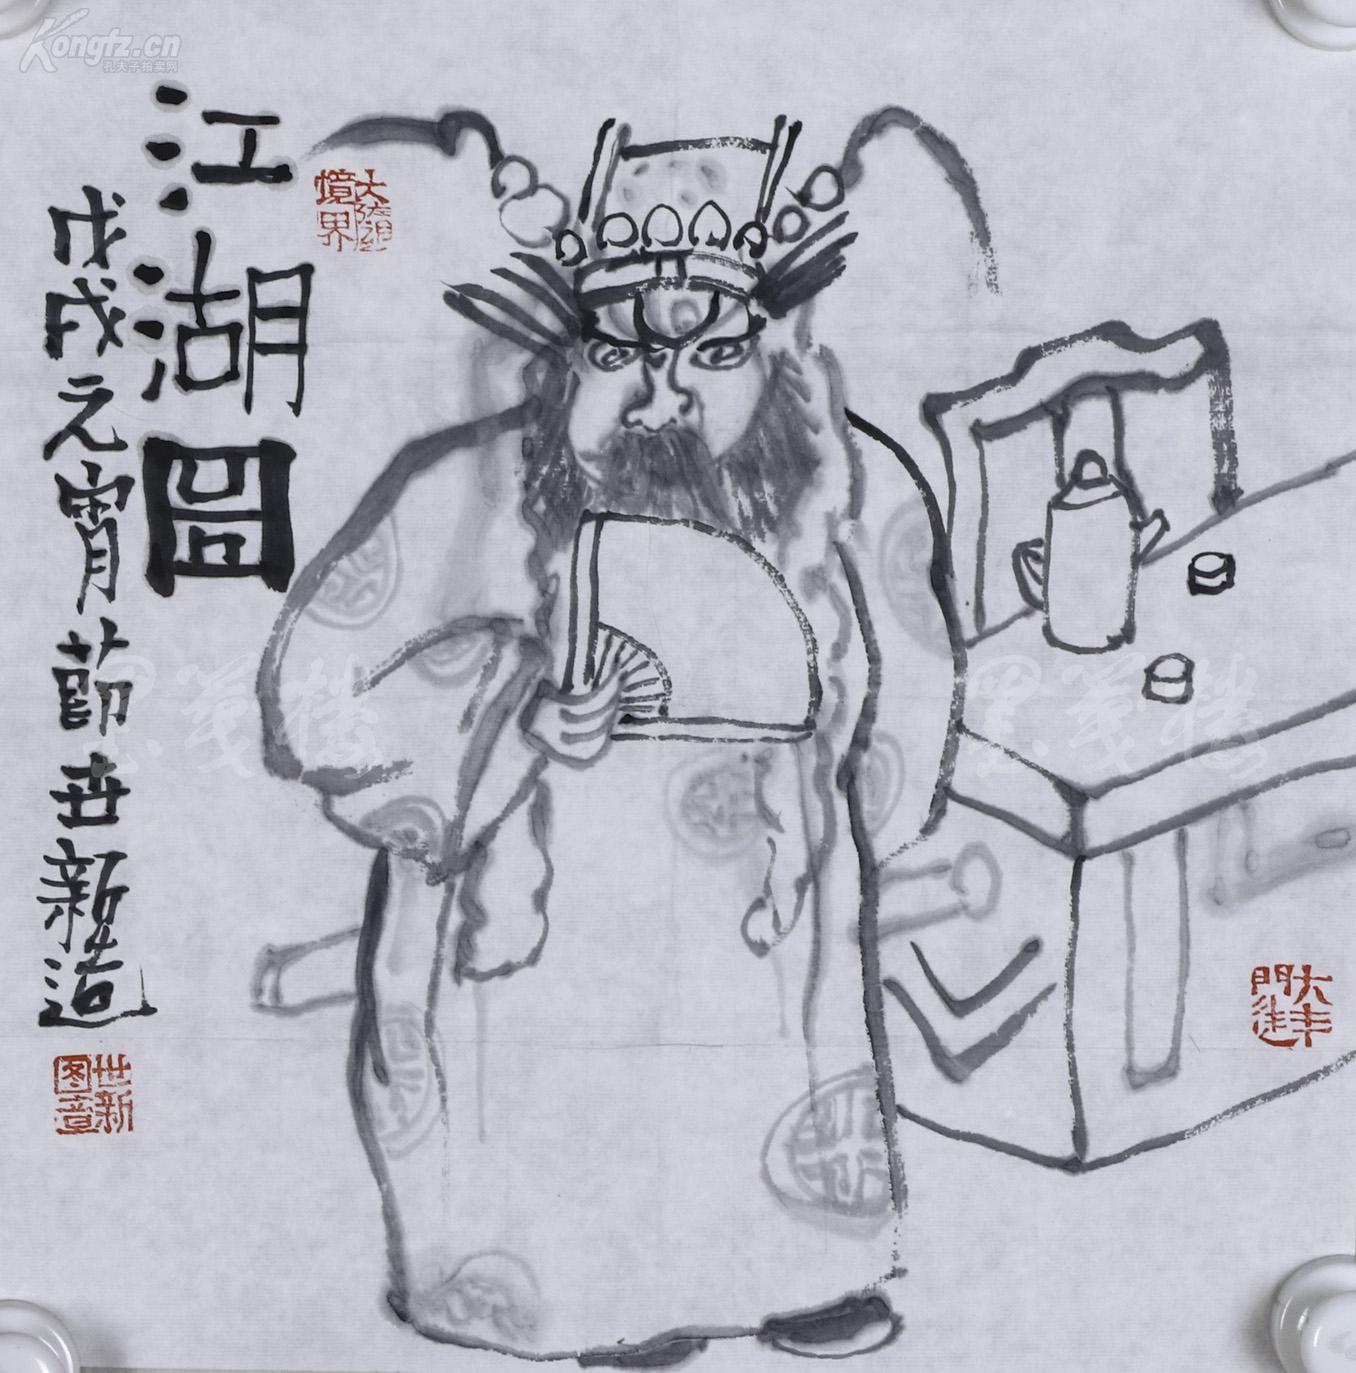 Kongfz.cn
孔夫子拍卖网
江湖圖
戊戌元宵節世新造
世新
图章
境界
墨笺楼
墨笺楼